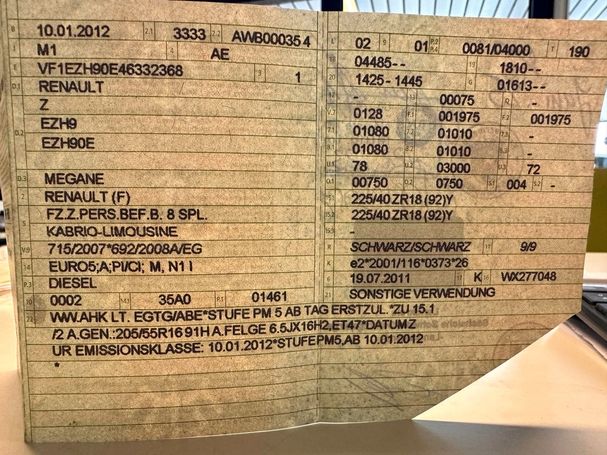 B 10.01.2012 2.1 3333 2.2 AWB000354
J M1 4 AE
E VF1EZH90E46332368 3 1
D.1 RENAULT
Z
D.2 EZH9
EZH90E
D.3 MEGANE
2 RENAULT (F)
5 FZ.Z.PERS.BEF.B. 8 SPL.
KABRIO-LIMOUSINE
V.9 715/2007*692/2008A/EG
14 EURO5;A;PI/CI; M, N1 I
P.3 DIESEL
10 0002 14.1 35A0 P.1 01461
22 WW.AHK LT. EGTG/ABE*STUFE PM 5 AB TAG ERSTZUL.*ZU 15.1
/2 A.GEN.:205/55R16 91H A.FELGE 6.5JX16H2,ET47*DATUM Z
UR EMISSIONSKLASSE: 10.01.2012*STUFE PM5,AB 10.01.2012
*
L 02 9 01 P.2 P.4 0081/04000 T 190
18 04485-- 19 1810--
20 1425-1445 G 01613--
12 - 13 00075 Q -
V.7 0128 F.1 001975 F.2 001975
7.1 01080 7.2 01010 7.3 -
8.1 01080 8.2 01010 8.3 -
U.1 78 U.2 03000 U.3 72
O.1 00750 O.2 0750 S.1 004 S.2 -
15.1 225/40 ZR18 (92)Y
15.2 225/40 ZR18 (92)Y
15.3 -
R SCHWARZ/SCHWARZ 11 9/9
K e2*2001/116*0373*26
6 19.07.2011 17 K 16 WX277048
21 SONSTIGE VERWENDUNG